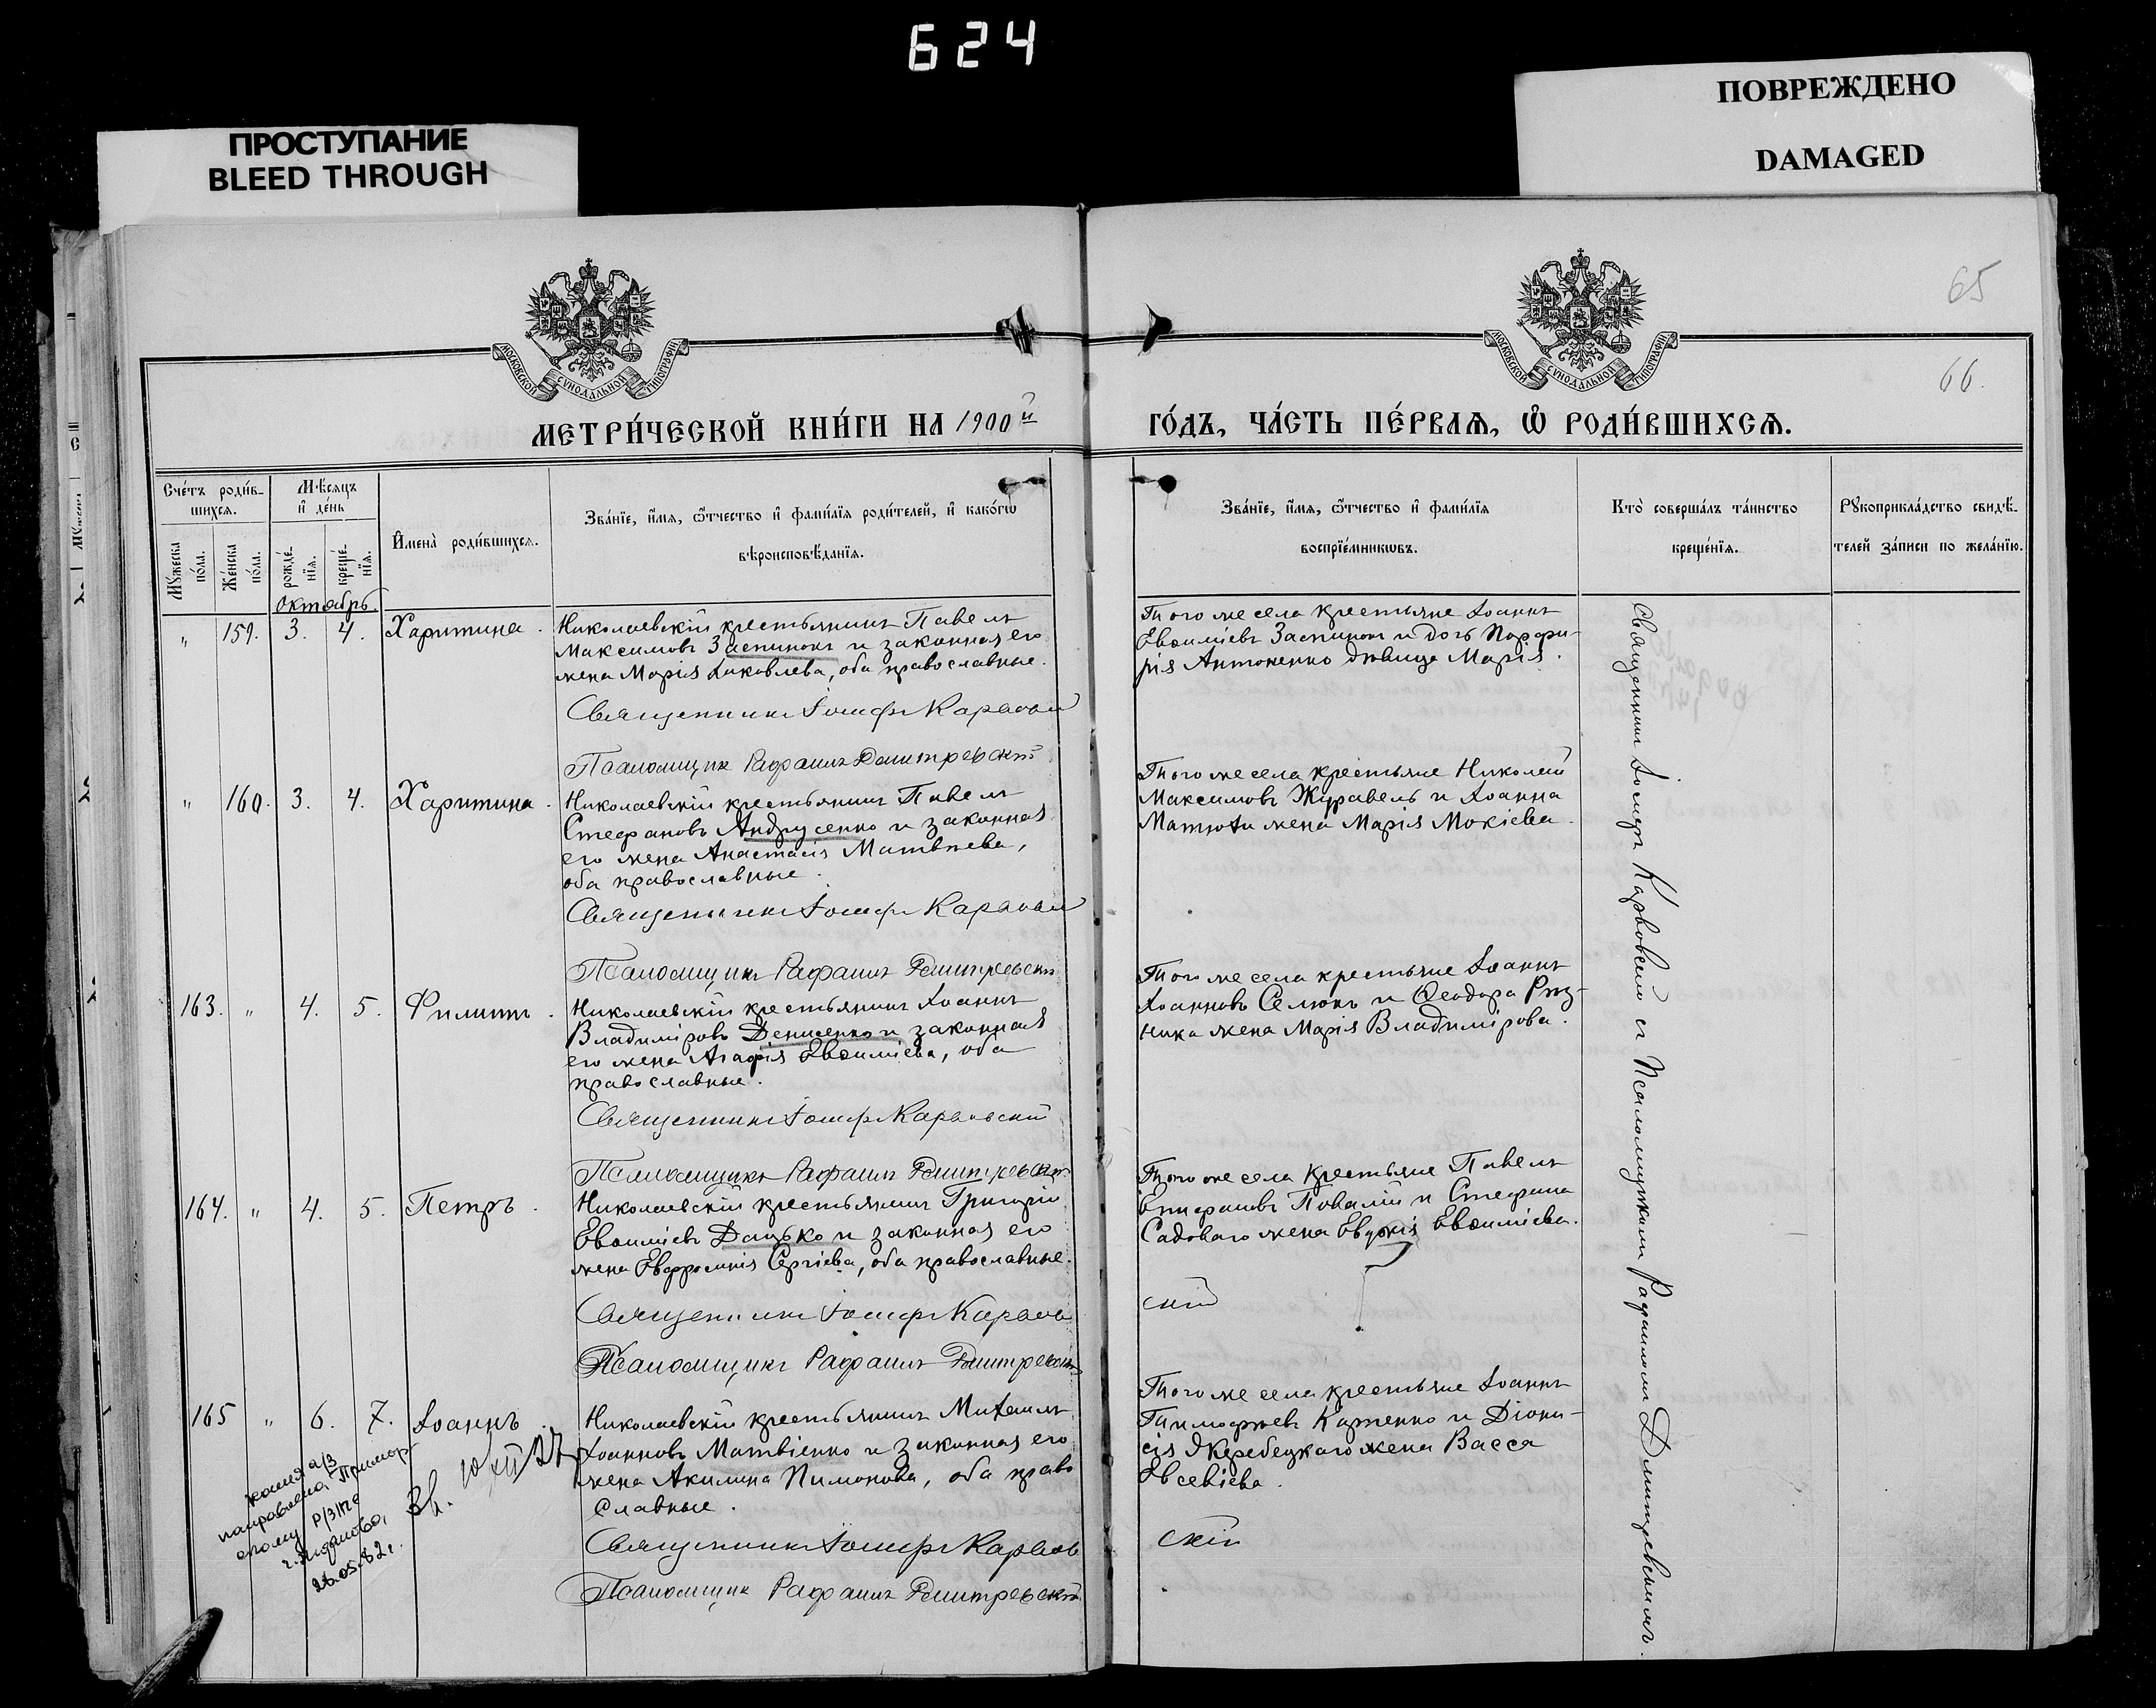 624
ПРОСТУПАНИЕ
BLEED THROUGH
ПОВРЕЖДЕНО
DAMAGED
65
66.
МОСКОВСКОЙ СѴНОДАЛЬНОЙ ТИПОГРАФІИ
МОСКОВСКОЙ СѴНОДАЛЬНОЙ ТИПОГРАФІИ
МЕТРИ́ЧЕСКОЙ КНИ́ГИ НА 1900й
ГО́ДЪ, ЧА́СТЬ ПЕ́РВАѦ, Ѡ РОДИ́ВШИХСѦ.
Сче́тъ роди́в-
шихсѧ.
Мѣ́сѧцъ
и҆ де́нь
Мꙋ́жеска
по́ла.
Же́нска
по́ла.
рожде́-
нїѧ.
креще́-
нїѧ.
И҆мена̀ роди́вшихсѧ.
Зва́нїе, и҆́мѧ, ѻ҆́тчество и҆ фами́лїѧ роди́телей, и҆ како́гѡ
вѣроисповѣ́данїѧ.
Зва́нїе, и҆́мѧ, ѻ҆́тчество и҆ фами́лїѧ
воспрїе́мникѡвъ.
Кто̀ соверша́лъ та́инство
креще́нїѧ.
Рꙋкоприкла́дство свидѣ́-
телей за́писи по жела́нїю.
Октябрь.
" 159. 3. 4. Харитина.
Николаевскій крестьянинъ Павелъ
Максимовъ Заспинокъ и законная его
жена Марія Іаковлева, оба православные.
Священникъ Іосифъ Карвовскій
Псаломщикъ Рафаилъ Дмитревскій
Того же села крестьяне Іоаннъ
Евѳиміевъ Заспинокъ и дочь Порфи-
рія Антоненко дѣвица Марія.
" 160. 3. 4. Харитина.
Николаевскій крестьянинъ Павелъ
Стефановъ Андрусенко и законная
его жена Анастасія Матвѣева,
оба православные.
Священникъ Іосифъ Карвовскій
Псаломщикъ Рафаилъ Дмитревскій
Того же села крестьяне Николай
Максимовъ Журавель и Іоанна
Матюхи жена Марія Мокіева.
163. " 4. 5. Филиппъ.
Николаевскій крестьянинъ Іоаннъ
Владиміровъ Денисенко и законная
его жена Агафія Евѳиміева, оба
православные.
Священникъ Іосифъ Карвовскій
Псаломщикъ Рафаилъ Дмитревскій
Того же села крестьяне Іоаннъ
Іоанновъ Селюкъ и Ѳеодора Рѣз-
ника жена Марія Владимірова.
164. " 4. 5. Петръ.
Николаевскій крестьянинъ Григорій
Евѳиміевъ Дацько и законная его
жена Евфросинія Сергіева, оба православные.
Священникъ Іосифъ Карвов
скій
Псаломщикъ Рафаилъ Дмитревскій
Того же села крестьяне Павелъ
Епифановъ Повалій и Стефана
Садоваго жена Евдокія Евѳиміева.
165 " 6. 7. Іоаннъ.
Николаевскій крестьянинъ Михаилъ
Іоанновъ Матвіенко и законная его
жена Акилина Пимонова, оба право
славные.
Священникъ Іосифъ Карвов
скій
Псаломщикъ Рафаилъ Дмитревскій
Того же села крестьяне Іоаннъ
Тимофѣевъ Куценко и Діони-
сія Жеребецкаго жена Васса
Евсевіева.
копия а/з
направлена Примор-
скому Р/ЗАГС
г. Жданова,
26.05.82г.
Священникъ Іосифъ Карвовскій и Псаломщикъ Рафаиломъ Дмитревскимъ.